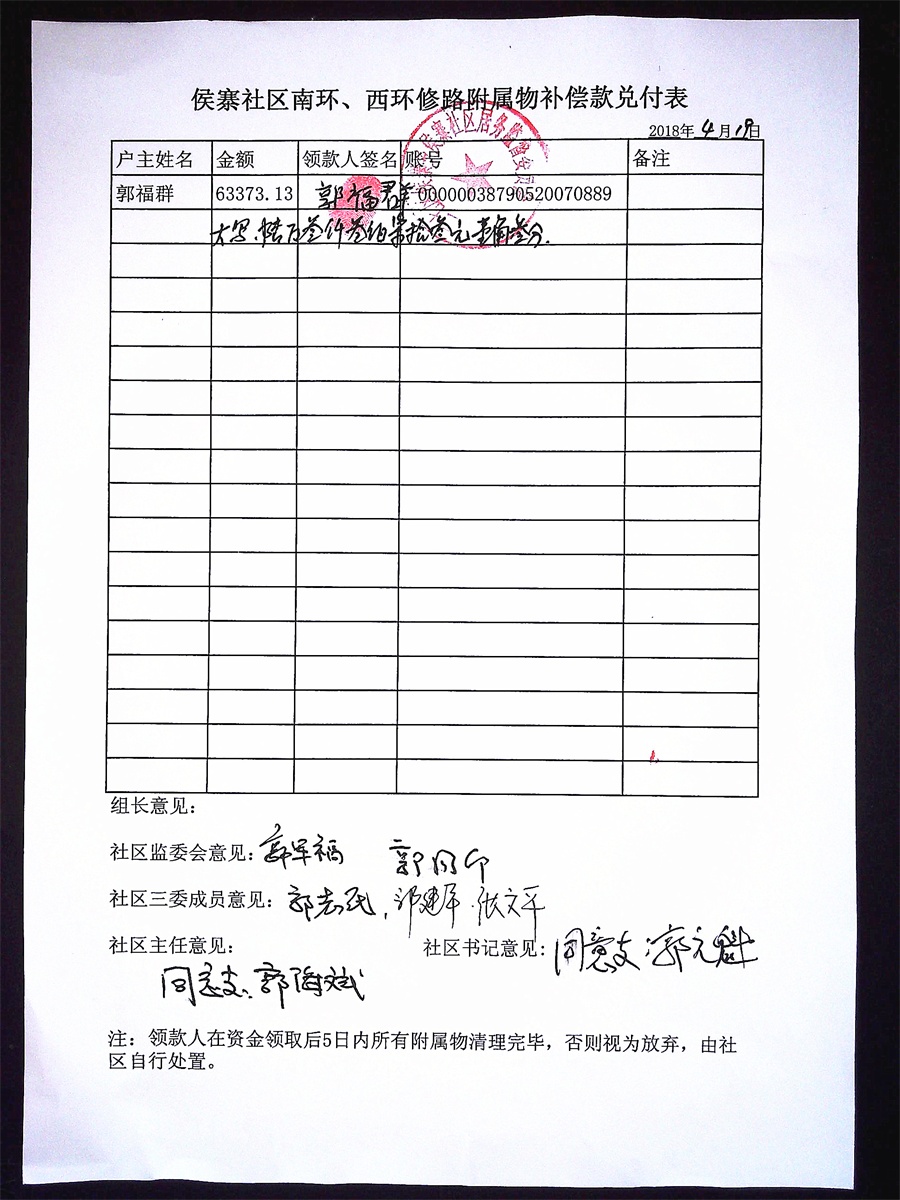 侯寨社区南环、西环修路附属物补偿款兑付表
2018年4月19日
户主姓名 金额 领款人签名 账号 备注
郭福群 63373.13 郭福群 00000038790520070889
大写:陆万叁仟叁佰柒拾叁元壹角叁分.
组长意见:
社区监委会意见: 郭军福 郭同印
社区三委成员意见: 郭志民, 邓建军. 张文平
社区主任意见: 社区书记意见: 同意支:郭元魁
同意支:郭海斌
注: 领款人在资金领取后5日内所有附属物清理完毕, 否则视为放弃, 由社
区自行处置。